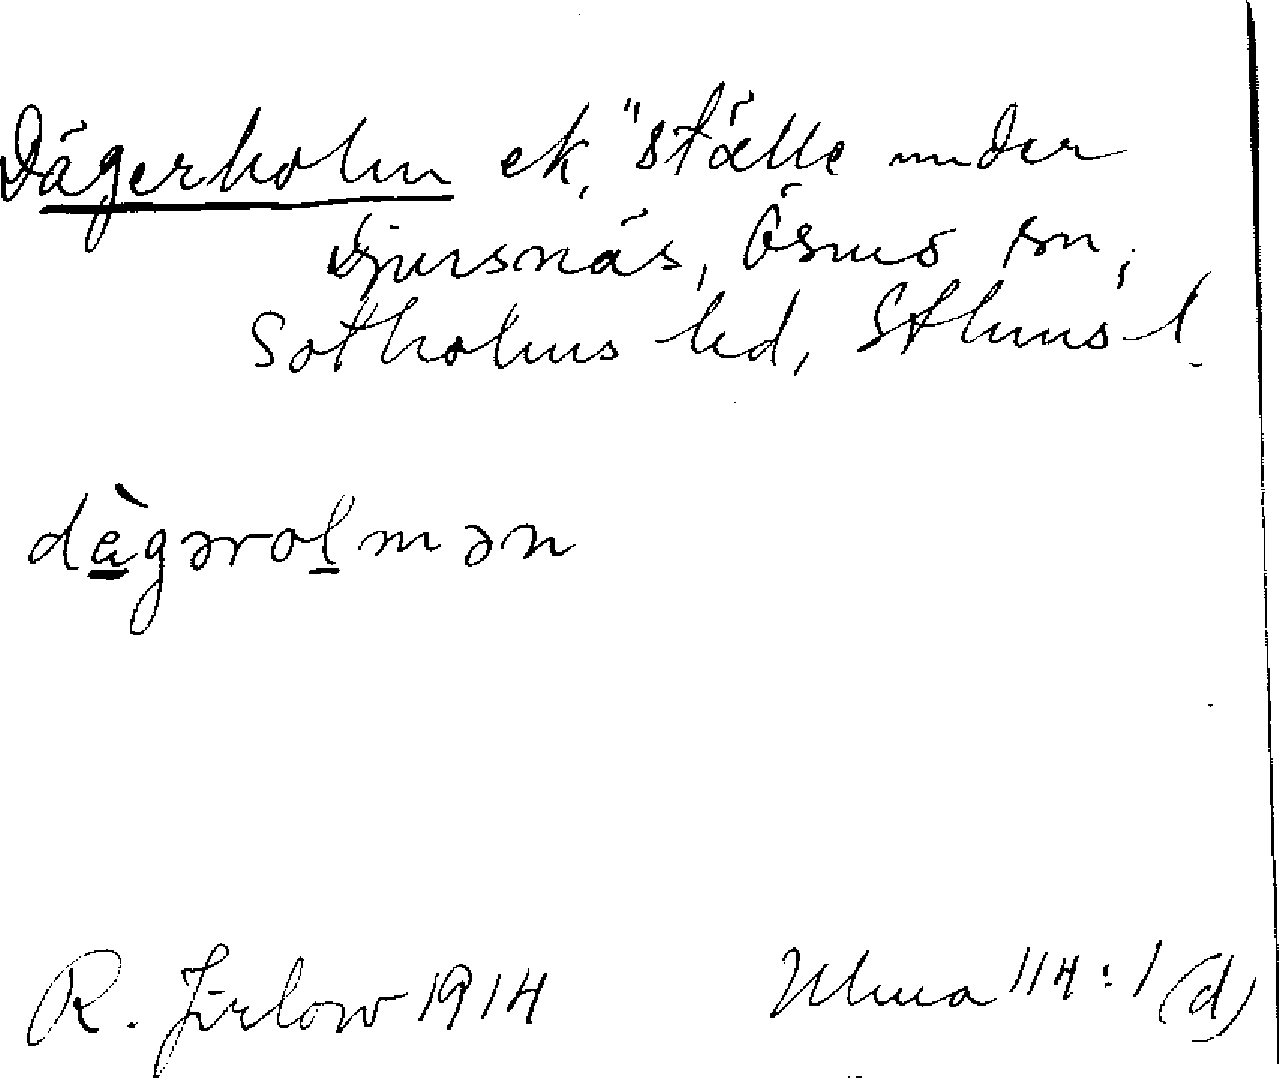 Dägerholm ek, "ställe under
Djursnäs, Ösmo sn,
Sotholms hd, Sthms l.
dä̀gərolmən
R. Jirlow 1914 Ulma 114:1 (d)